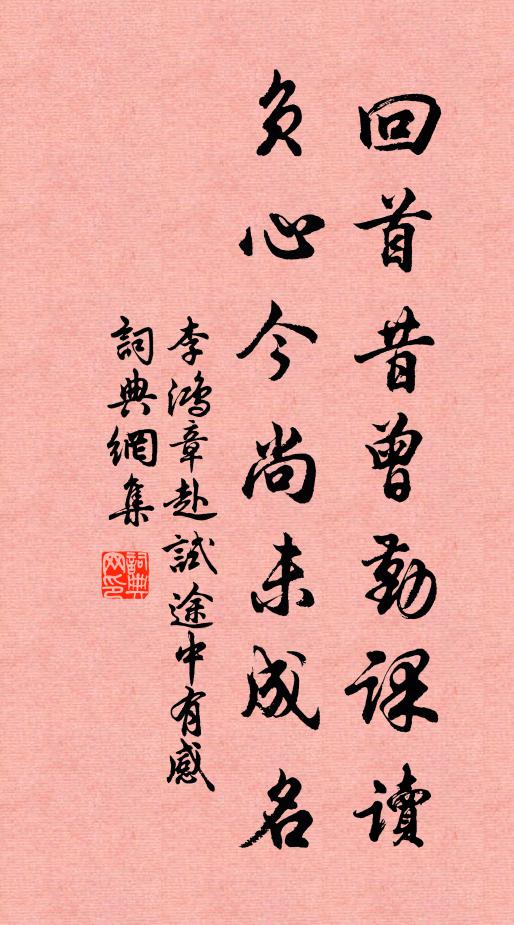 回首昔曾勤課讀
負心今尚未成名
李鴻章赴試途中有感
詞典網集
詞典網印